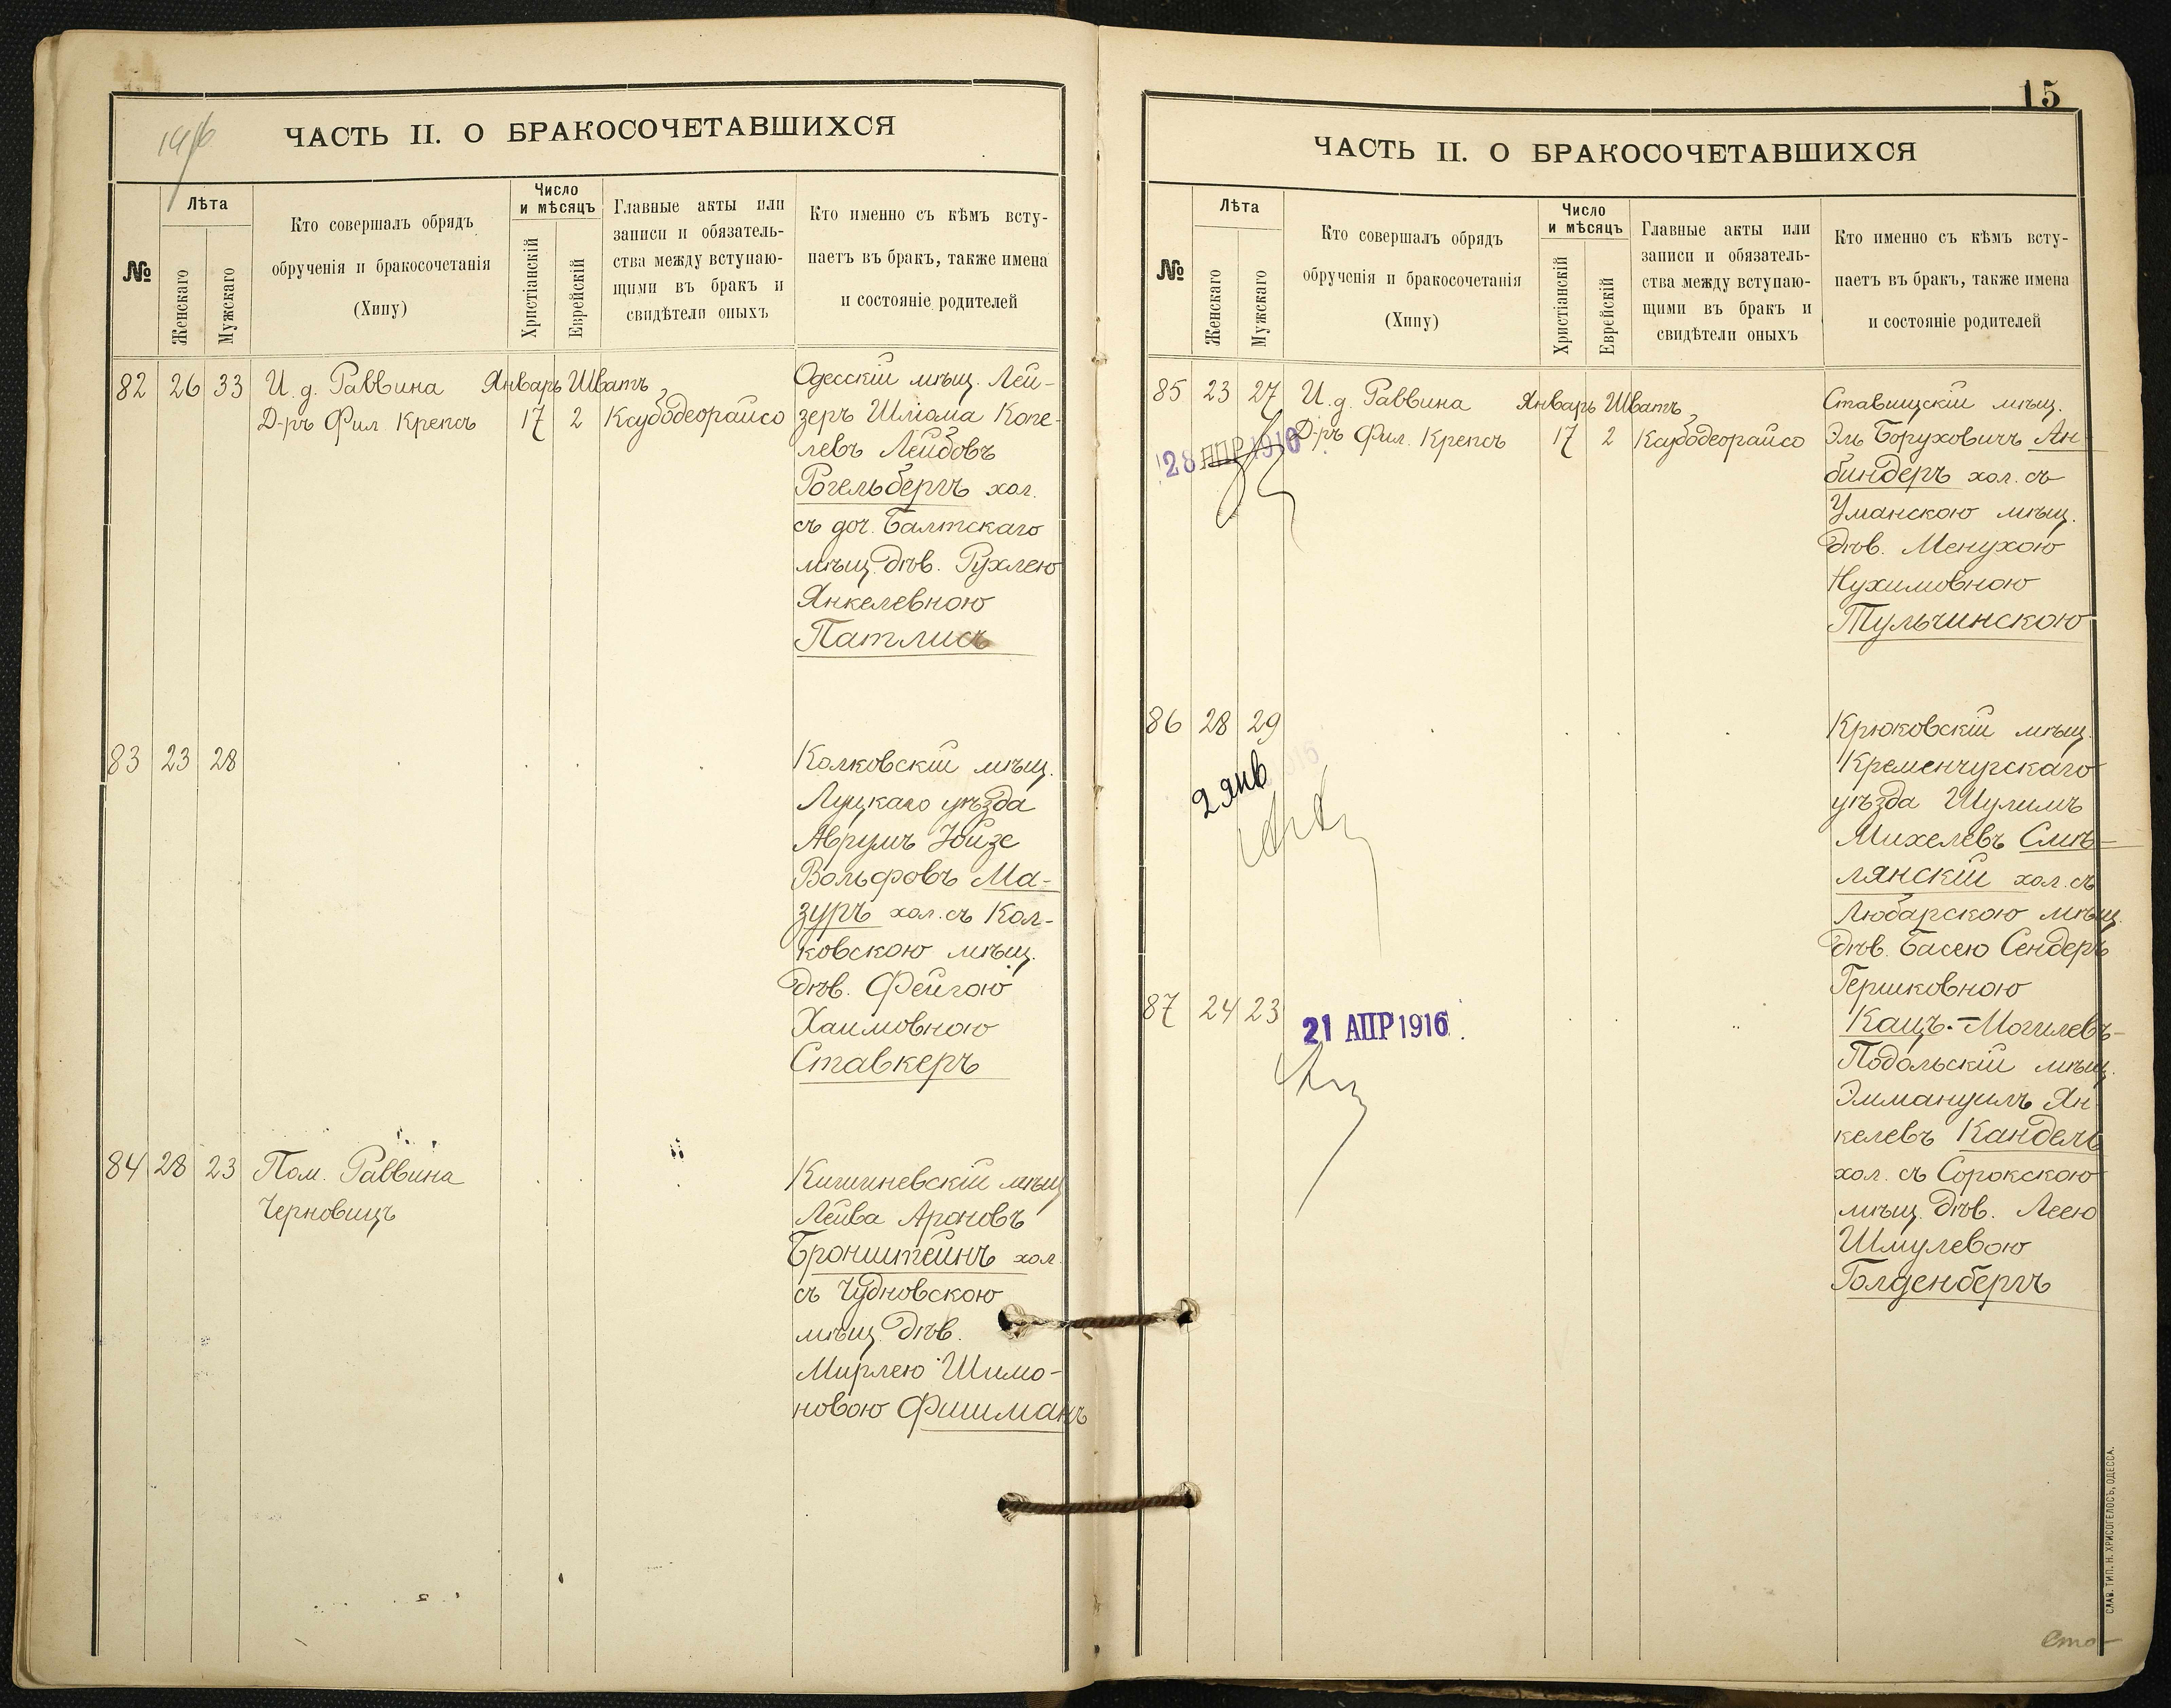 1916
ЧАСТЬ II. О БРАКОСОЧЕТАВШИХСЯ
№
Лѣта
Женскаго
Мужскаго
Кто совершалъ обрядъ
обрученія и бракосочетанія
(Хипу)
Число
и мѣсяцъ
Христіанскій
Еврейскій
Главные акты или
записи и обязатель-
ства между вступаю-
щими въ бракъ и
свидѣтели оныхъ
Кто именно съ кѣмъ всту-
паетъ въ бракъ, также имена
и состояніе родителей
82 26 33 И. д. Раввина Январь Шватъ
Д-ръ Фил Крепсъ 17 2
Одесскій мѣщ. Лей-
зеръ Шлiома Копе-
левъ Лейбовъ
Рогельбергъ хол.
съ доч. Балтскаго
мѣщ. дѣв. Рухлею
Янкелевною
Патлисъ
83 23 28
Колковскій мѣщ.
Луцкаго уѣзда
Аврумъ Юйзе
Вольфовъ Ма-
зуръ хол. съ Кол-
ковскою мѣщ.
дѣв. Фейгою
Хаимовною
Ставкеръ
84 28 23 Пом. Раввина
Черновицъ
Кишиневскій мѣщ
Лейва Ароновъ
Бронштейнъ хол.
съ Чудновскою
мѣщ. дѣв.
Мирлею Шимо-
новою Фишманъ
15
ЧАСТЬ II. О БРАКОСОЧЕТАВШИХСЯ
№
Лѣта
Женскаго
Мужскаго
Кто совершалъ обрядъ
обрученія и бракосочетанія
(Хипу)
Число
и мѣсяцъ
Христіанскій
Еврейскій
Главные акты или
записи и обязатель-
ства между вступаю-
щими въ бракъ и
свидѣтели оныхъ
Кто именно съ кѣмъ всту-
паетъ въ бракъ, также имена
и состояніе родителей
85 23 27 И. д. Раввина Январь Шватъ
Д-ръ Фил. Крепсъ 17 2
28 АПР 1916
Ставищскій мѣщ.
Эль Боруховичъ Ан-
биндеръ хол. съ
Уманскою мѣщ.
дѣв. Менухою
Нухимовною
Тульчинскою
86 28 29
2 янв
Крюковскій мѣщ.
Кременчугскаго
уѣзда Шулимъ
Михелевъ Смѣ-
лянскій хол. съ
Любарскою мѣщ.
дѣв. Басею Сендеръ
Гершковною
Кацъ.-
87 24 23
21 АПР 1916
Могилевъ-
Подольскій мѣщ.
Эммануилъ Ян-
келевъ Кандель
хол. съ Сорокскою
мѣщ. дѣв. Леею
Шмулевою
Голденбергъ
СЛАВ. ТИП. Н. ХРИСОГЕЛОСЪ, ОДЕССА.